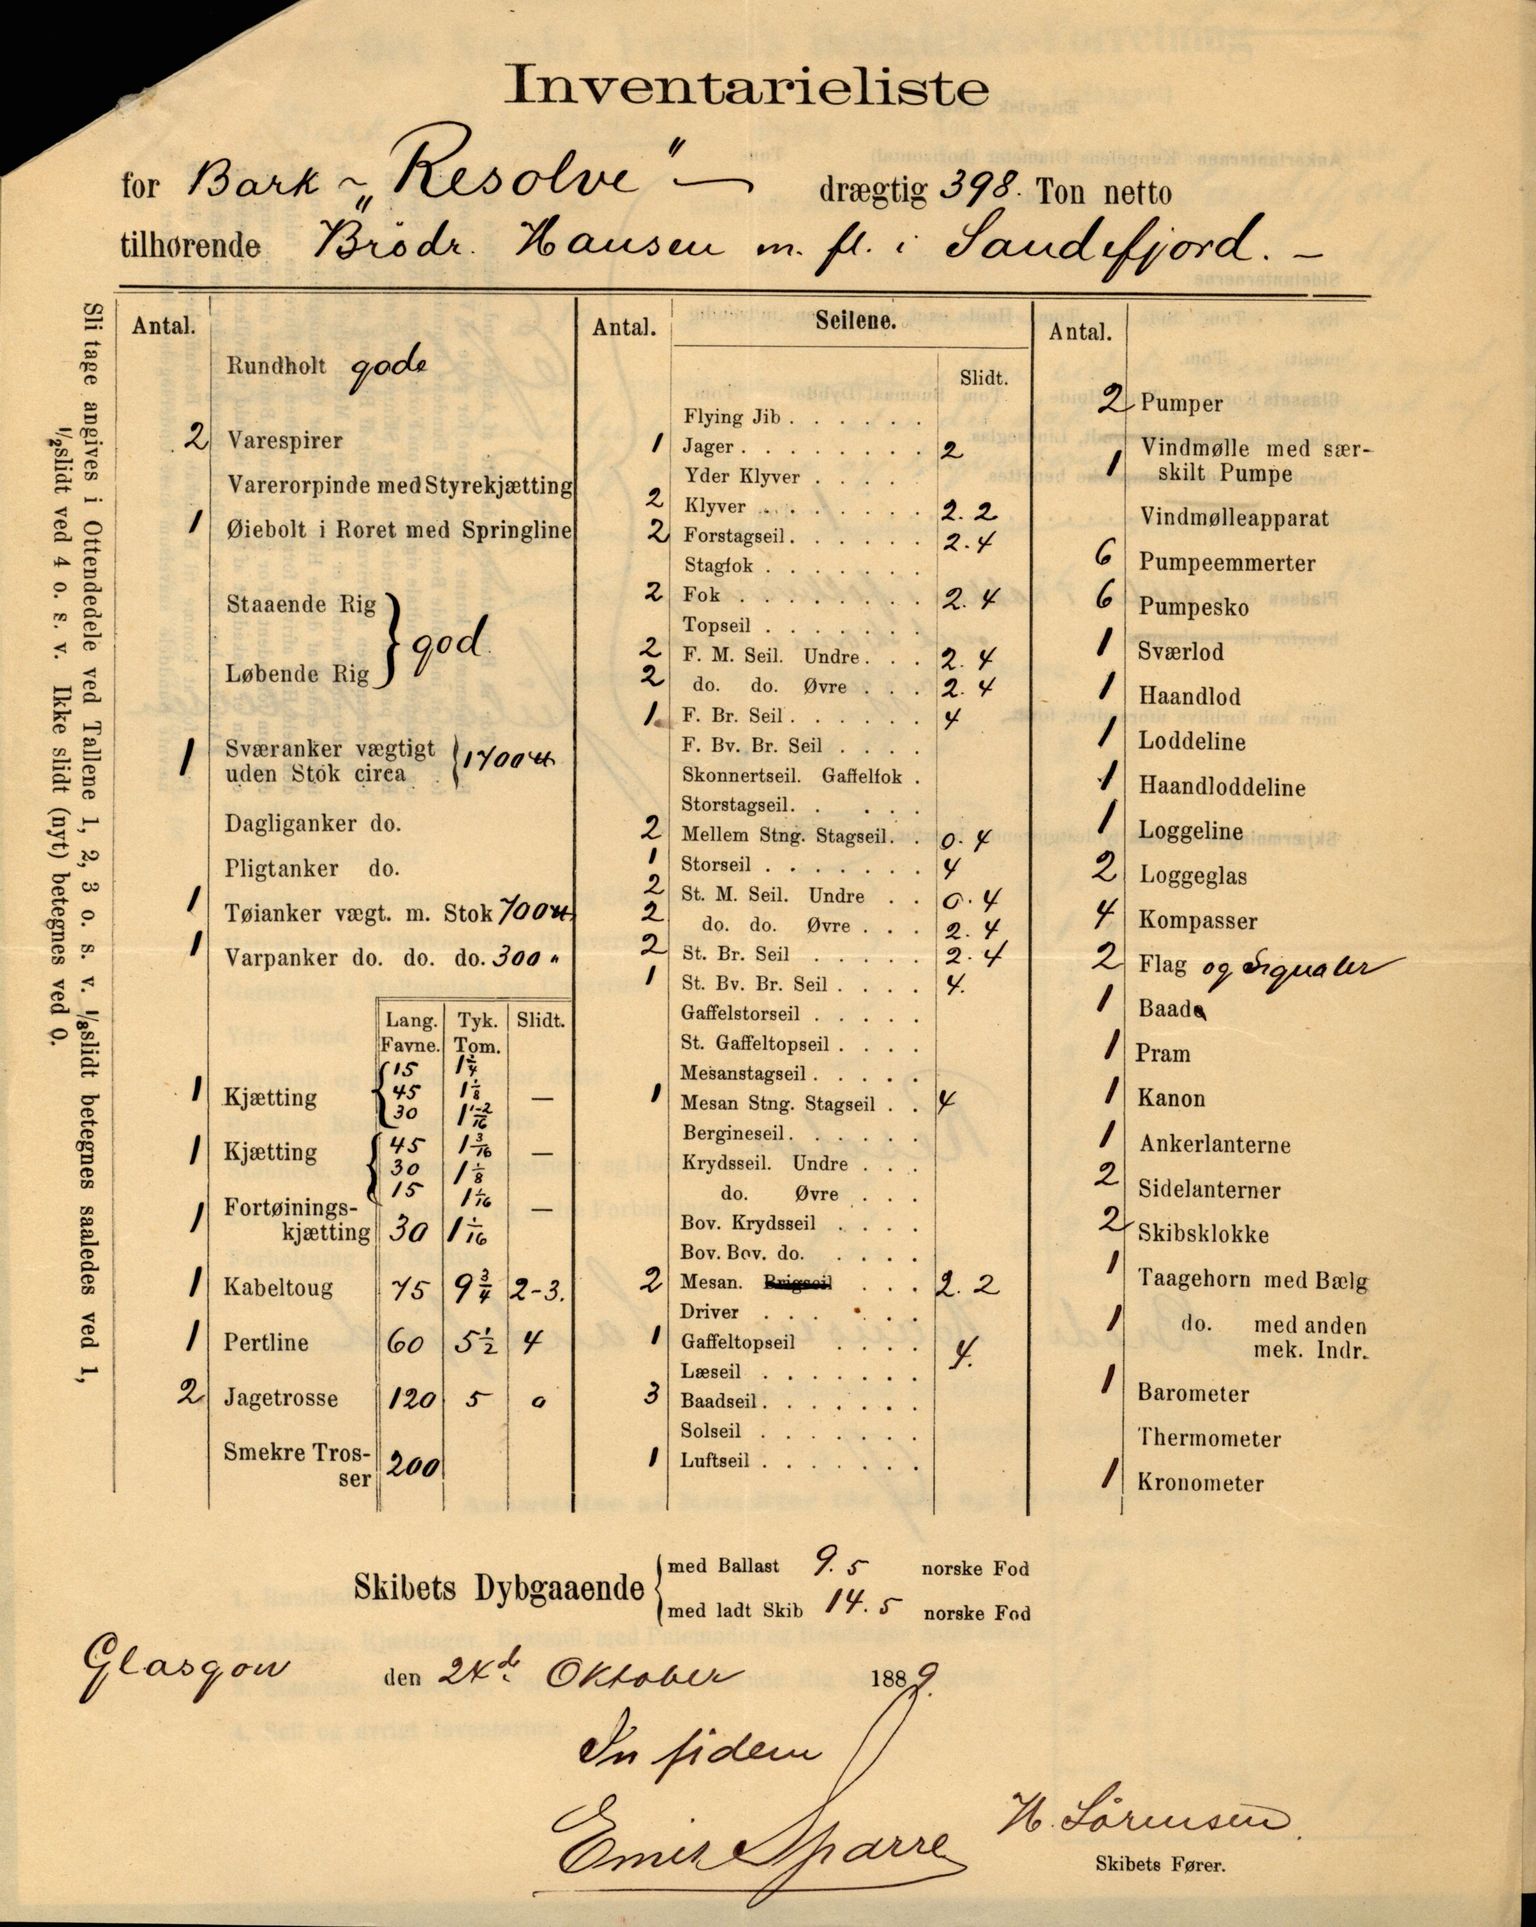 Inventarieliste
for Bark ~ „Resolve" — drægtig 398. Ton netto
tilhørende Brödr. Hansen m. fl. i Sandefjord. –
Sli tage angives i Ottendedele ved Tallene 1, 2, 3 o. s. v. ⅛slidt betegnes saaledes ved 1,
½slidt ved 4 o. s. v. Ikke slidt (nyt) betegnes ved 0.
Antal.
Rundholt gode
2 Varespirer
Varerorpinde med Styrekjætting
1 Øiebolt i Roret med Springline
Staaende Rig
Løbende Rig } god.
1 Sværanker vægtigt
uden Stok circa { 1700 ℔
Dagliganker do.
Pligtanker do.
1 Tøianker vægt. m. Stok 700 ℔
1 Varpanker do. do. do. 300 "
Lang. Favne. Tyk. Tom. Slidt.
1 Kjætting { 15 1 2/4
45 1 1/8
30
—
1 Kjætting { 45 1 3/16
30 1 1/8
15 1 1/16
—
1 Fortøinings-
kjætting 30 1 1/16 —
1 Kabeltoug 75 9 3/4 2-3.
1 Pertline 60 5 1/2 4
2 Jagetrosse 120 5 0
Smekre Tros-
ser 200
Antal. Seilene.
Slidt.
Flying Jib
1 Jager 2
Yder Klyver
2 Klyver 2. 2
2 Forstagseil 2. 4
Stagfok
2 Fok 2. 4
Topseil
2 F. M. Seil. Undre 2. 4
2 do. do. Øvre 2. 4
1 F. Br. Seil 4
F. Bv. Br. Seil
Skonnertseil. Gaffelfok
Storstagseil
2 Mellem Stng. Stagseil 0. 4
1 Storseil 4
2 St. M. Seil. Undre 0. 4
2 do. do. Øvre 2. 4
2 St. Br. Seil 2. 4
1 St. Bv. Br. Seil 4.
Gaffelstorseil
St. Gaffeltopseil
Mesanstagseil
1 Mesan Stng. Stagseil 4
Bergineseil
Krydsseil. Undre
do. Øvre
Bov. Krydsseil
Bov. Bov. do.
2 Mesan. Brigseil 2. 2
Driver
1 Gaffeltopseil 4.
Læseil
3 Baadseil
Solseil
1 Luftseil
Antal.
2 Pumper
1 Vindmølle med sær-
skilt Pumpe
Vindmølleapparat
6 Pumpeemmerter
6 Pumpesko
1 Sværlod
1 Haandlod
1 Loddeline
1 Haandloddeline
1 Loggeline
2 Loggeglas
4 Kompasser
2 Flag og Signaler
1 Baade
1 Pram
1 Kanon
1 Ankerlanterne
2 Sidelanterner
2 Skibsklokke
1 Taagehorn med Bælg
1 do. med anden
mek. Indr.
1 Barometer
Thermometer
1 Kronometer
Skibets Dybgaaende { med Ballast 9. 5 norske Fod
med ladt Skib 14. 5 norske Fod
Glasgow den 24de Oktober 1889.
In fidem
Emil Sparre
H. Sörensen.
Skibets Fører.